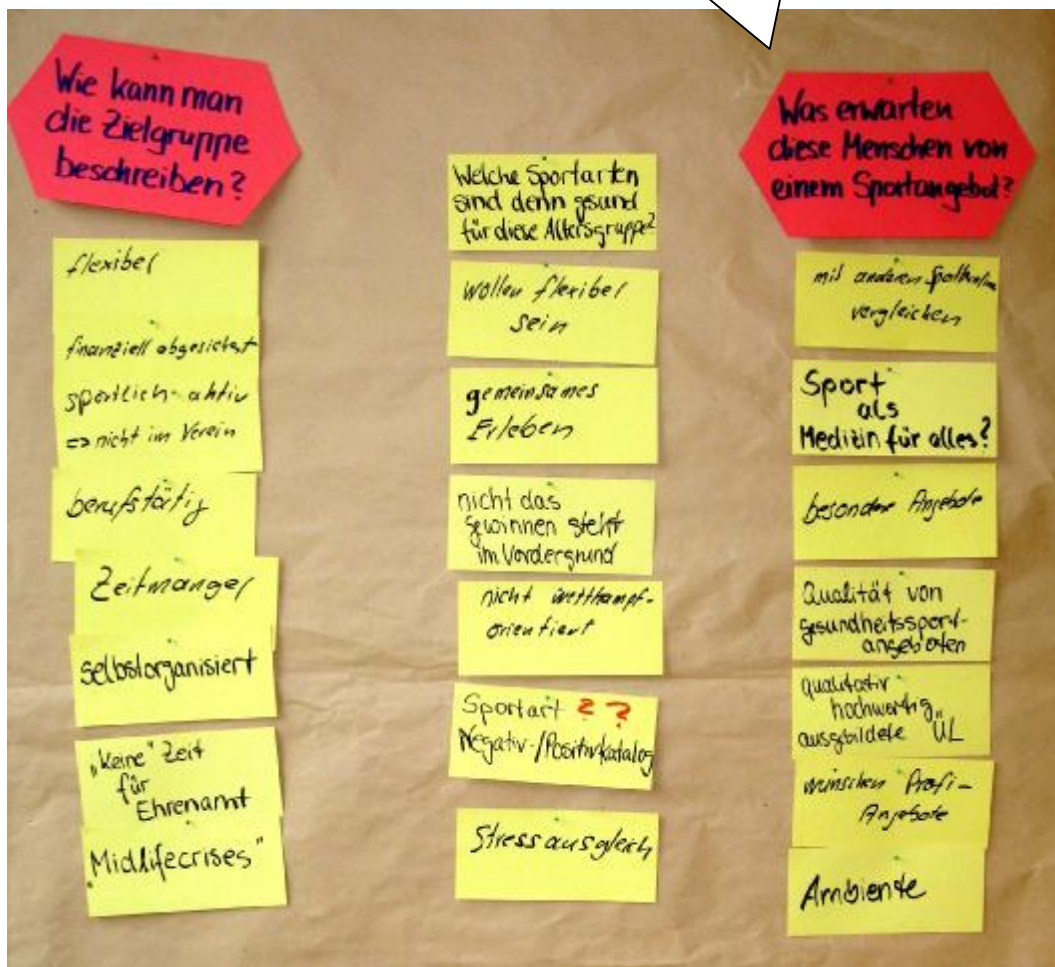 Wie kann man
die Zielgruppe
beschreiben?
flexibel
finanziell abgesichert
sportlich-aktiv
=> nicht im Verein
berufstätig
Zeitmangel
selbstorganisiert
"keine" Zeit
für
Ehrenamt
"Midlifecrises"
Welche Sportarten
sind denn gesund
für diese Altersgruppe?
wollen flexibel
sein
gemeinsames
Erleben
nicht das
gewinnen steht
im Vordergrund
nicht wettkampf-
orientiert
Sportart ??
Negativ-/Positivkatalog
Stressausgleich
Was erwarten
diese Menschen von
einem Sportangebot?
mit anderen
vergleichen
Sport
als
Medizin für alles?
besondere Angebote
Qualität von
gesundheitssport-
angeboten
qualitativ
hochwertig
ausgebildete ÜL
wünschen Profi-
Angebote
Ambiente